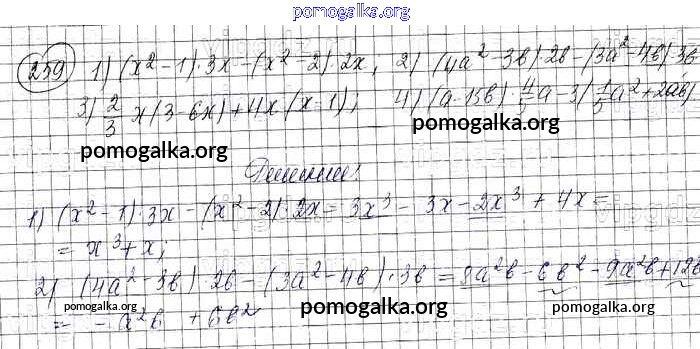 pomogalka.org
259 1) (x² - 1)·3x - (x² - 2)·2x; 2) (4a² - 3b)·2b - (3a² - 4b)·3b
3) 2/3 x(3 - 6x) + 4x(x - 1); 4) (a - 15b)·4/5 a - 3(1/5 a² + 2ab)
pomogalka.org pomogalka.org
Решение:
1) (x² - 1)·3x - (x² - 2)·2x = 3x³ - 3x - 2x³ + 4x =
= x³ + x;
2) (4a² - 3b)·2b - (3a² - 4b)·3b = 8a²b - 6b² - 9a²b + 12b
= - a²b + 6b²
pomogalka.org pomogalka.org pomogalka.org